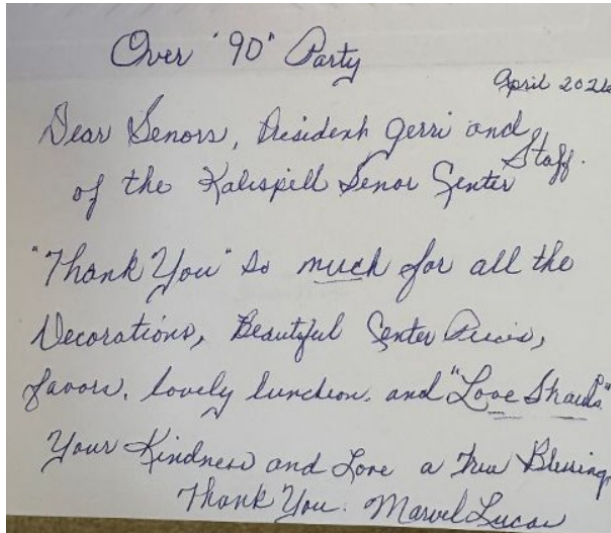 Over "90" Party
April 202
Dear Senors, President Gerri and
Staff.
of the Kalispell Senor Center
"Thank You" so much for all the
Decorations, Beautiful Center Pieces,
favors, lovely luncheon. and "Love Shared"
Your Kindness and Love a true Blessing,
Thank You. Marvel Lucas